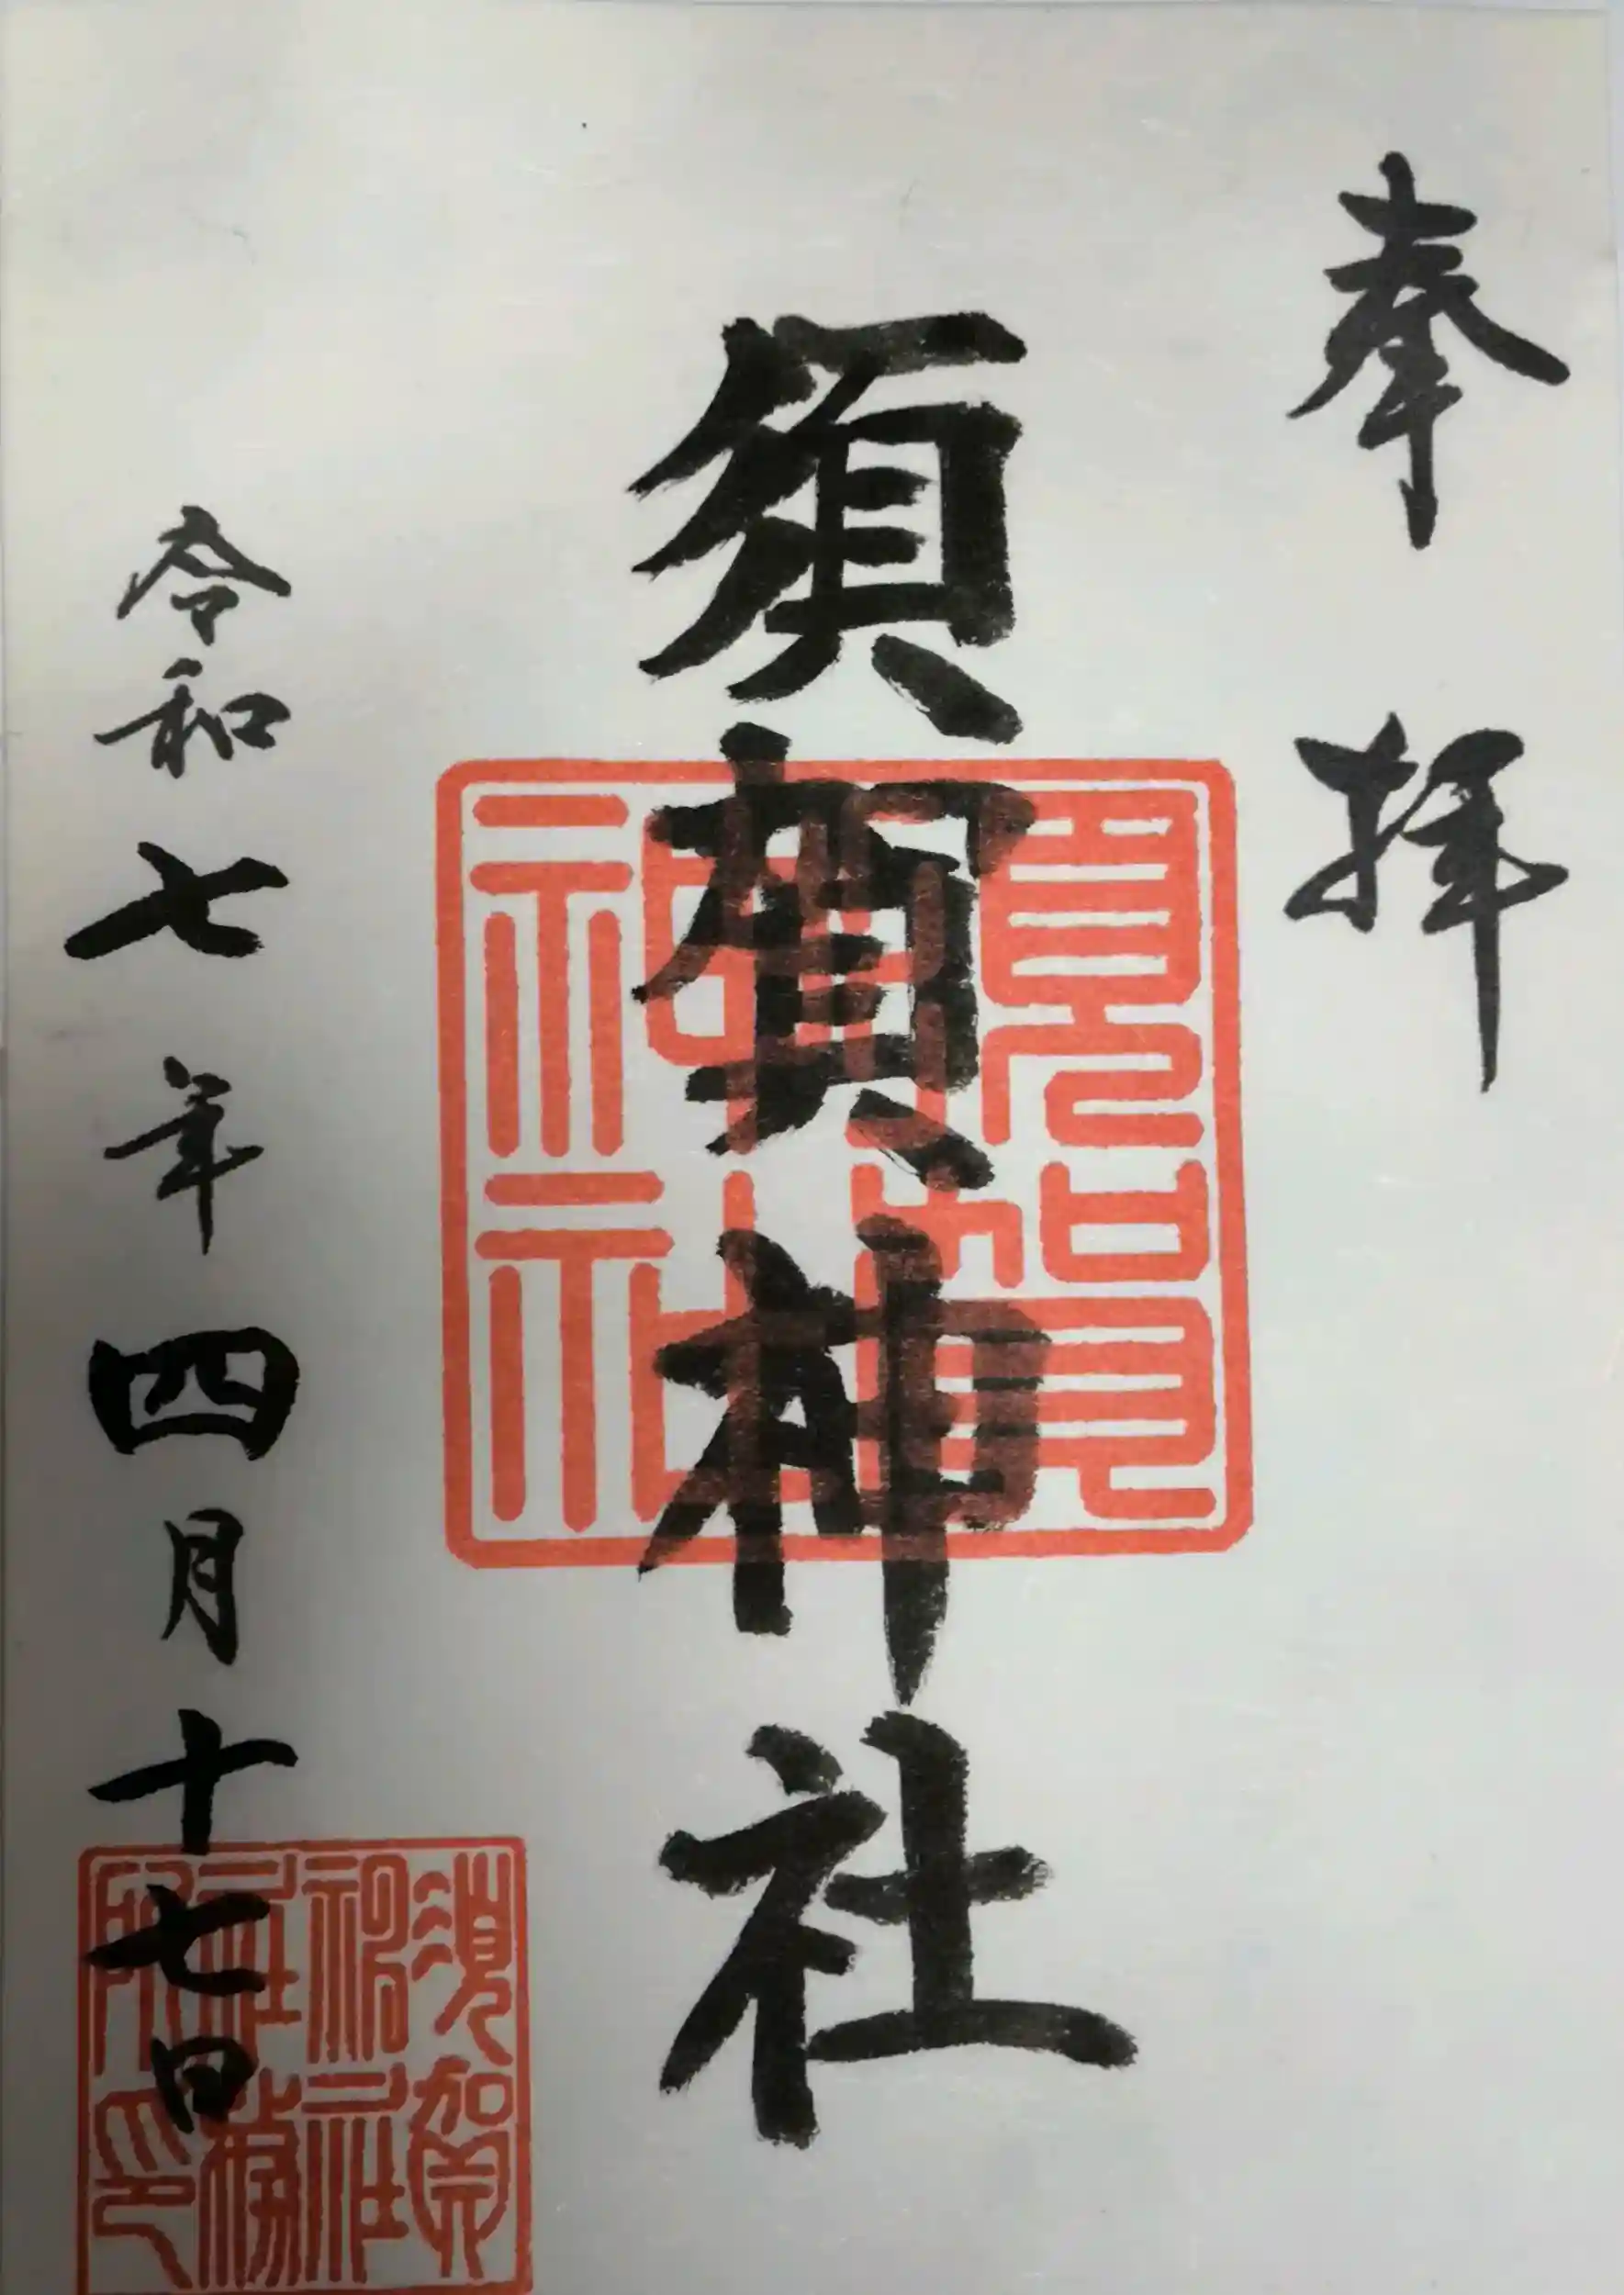 奉拝
須賀神社
須賀神社
令和七年四月十七日
須賀神社社務所印